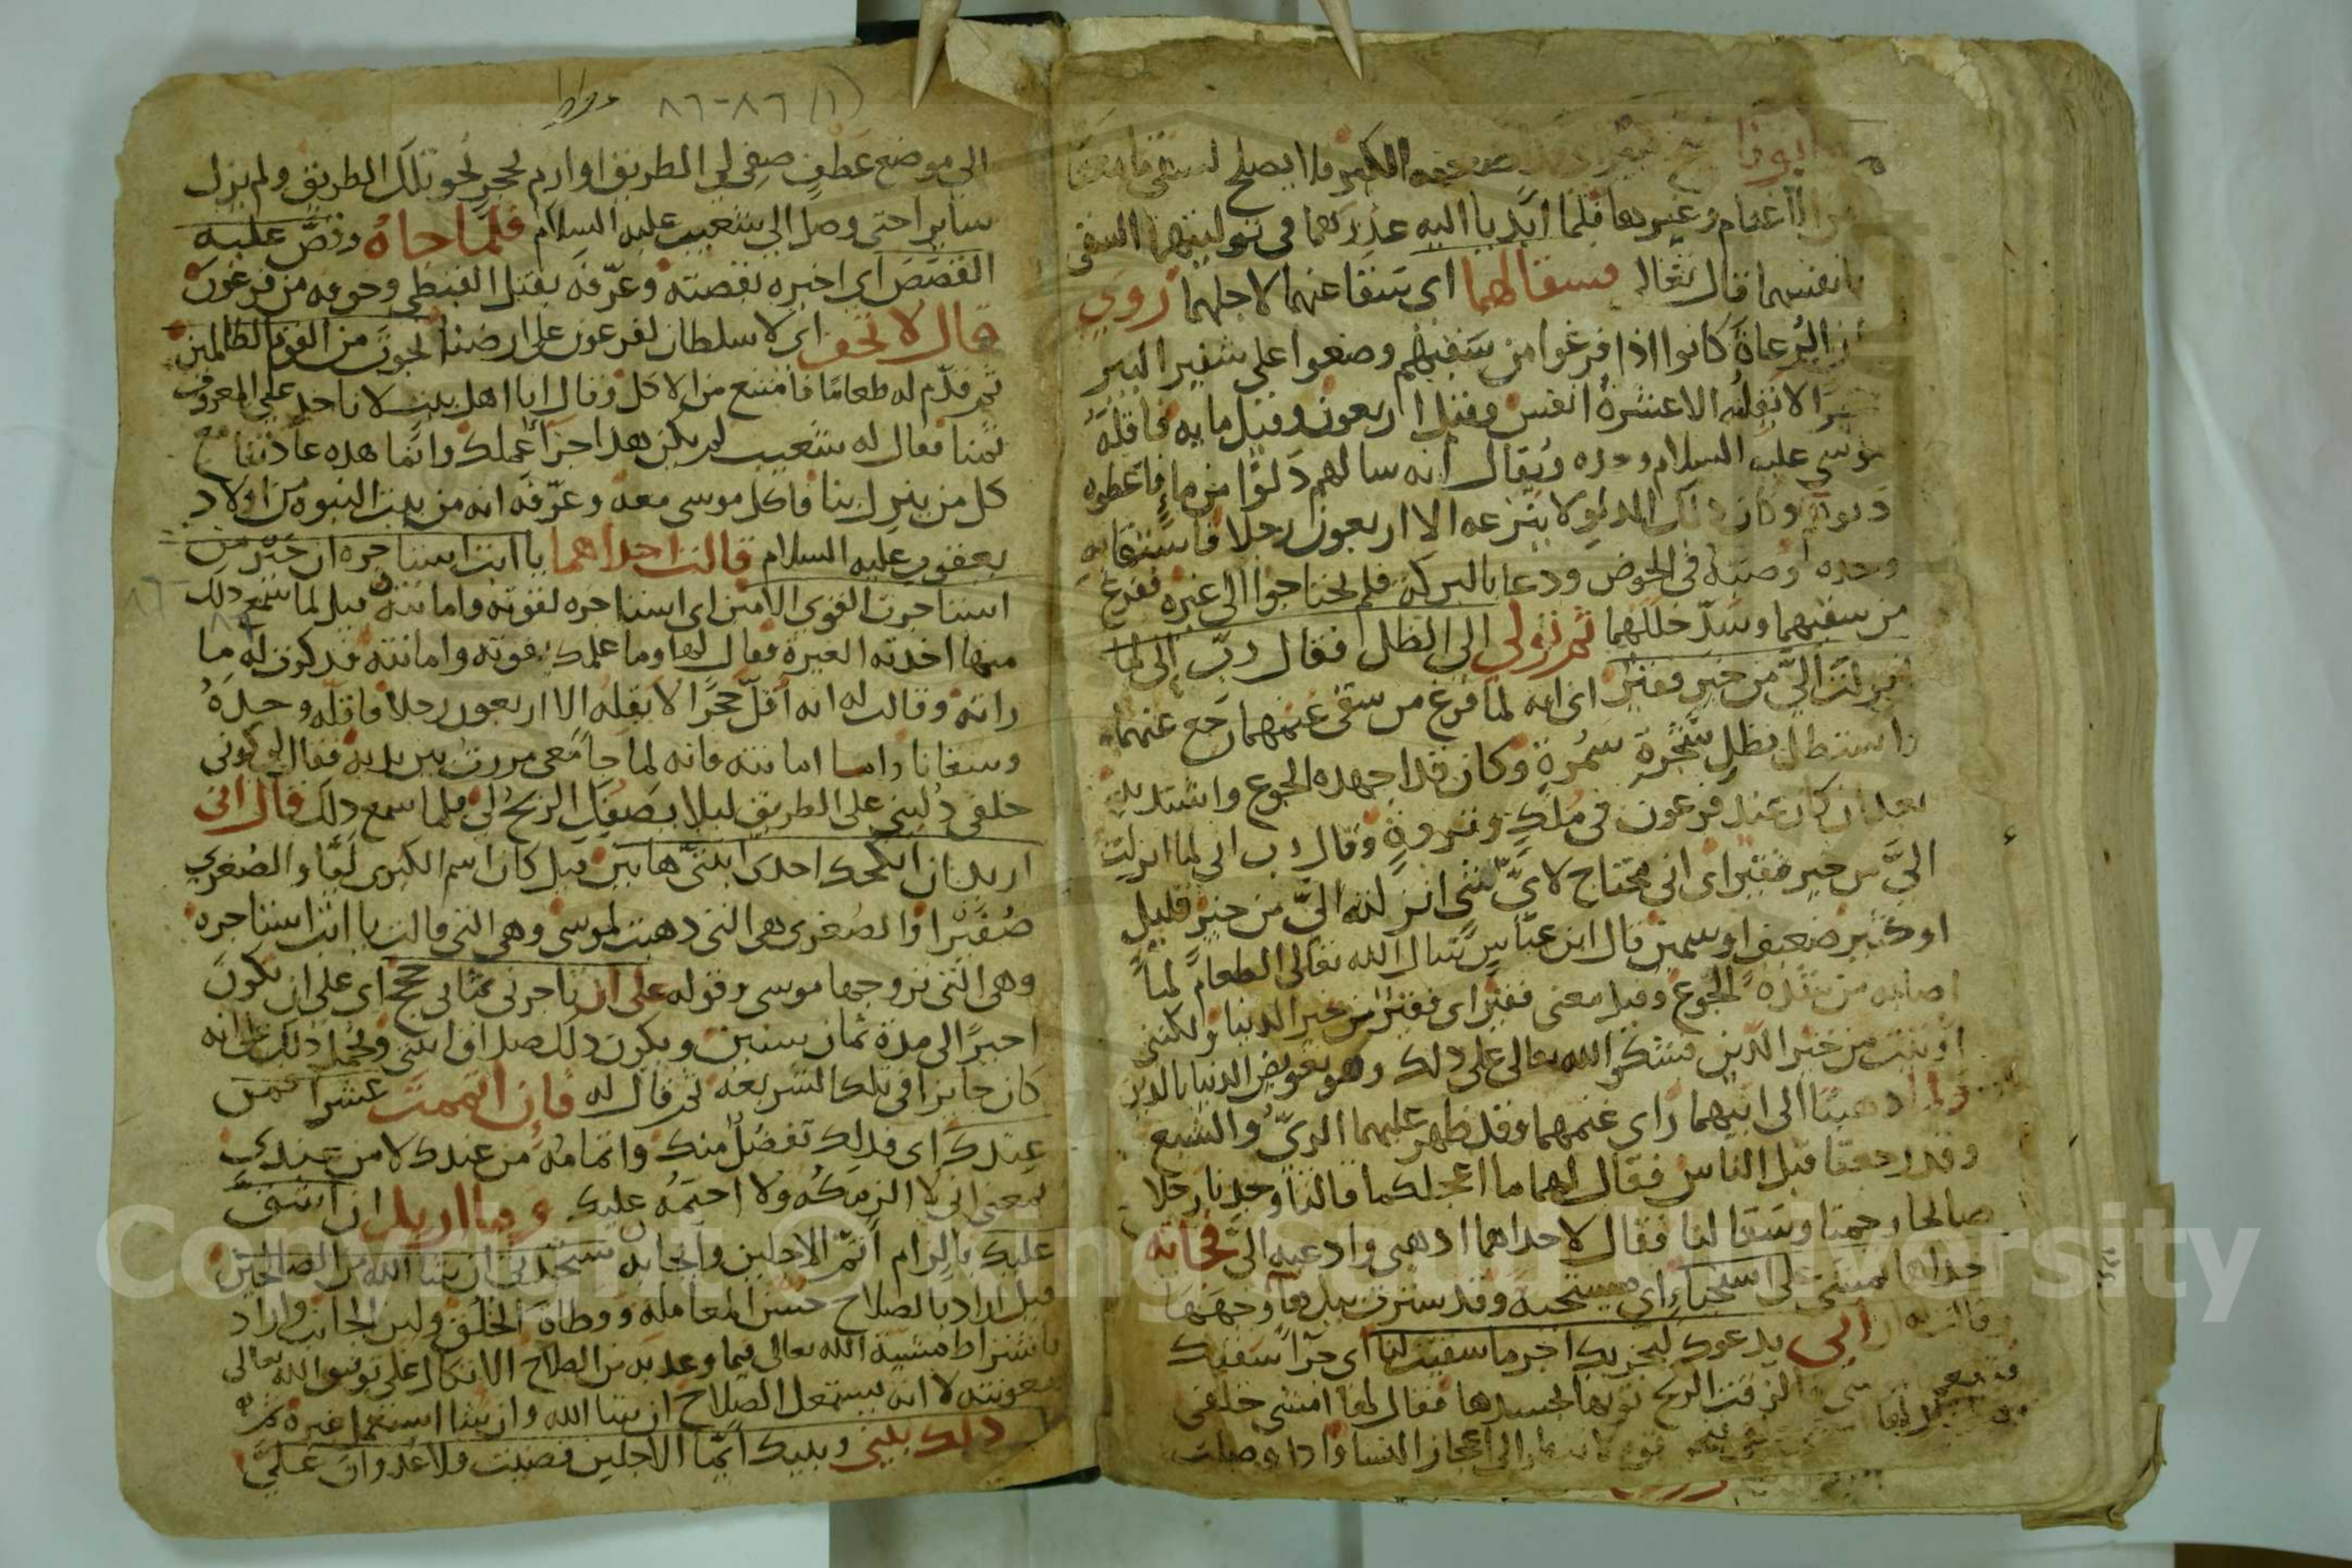 وابونا شيخ كبير الكبير ما يصلح لسقى ما معنا
من الاغنام وغيرها فلما ابديا اليه عذرهما فى توليتهما السقى
بانفسهما قال تعالى فسقا لهما اى سقا عنهما لاجلهما روى
ان الرعاة كانوا اذا فرغوا من سقيهم وضعوا على شفير البير
حجرا لا يقله الا عشرة انفس وقيل اربعون وقيل مايه فاقله
موسى عليه السلام وحده ويقال انه سالهم دلوا من ماء فاعطوه
دلوا وكان ذلك الدلو لا ينزعه الا اربعون رجلا فاستقا به
وحده وصبه فى الحوض ودعا بالبركة فلم يحتاجوا الى غيره ففرغ
من سقيهما وسد خللهما ثم تولى الى الظل فقال رب انى لما
انزلت الى من خير فقير اى انه لما فرغ من سقى غنمهما رجع عنهما
واستظل بظل شجرة سمرة وكان قد اجهده الجوع واشتد به
بعد ان كان عند فرعون فى ملك وثروة وقال رب انى لما انزلت
الى من خير فقير اى انى محتاج لاى شى انزلته الى من خير قليل
او كثير ضعيف او سمين قال ابن عباس سال الله تعالى الطعام لما
اصابه من شدة الجوع وقيل معنى فقير اى فقير من خير الدنيا ولكننى
اوتيت من خير الدين فشكر الله تعالى على ذلك وهو تعويض الدنيا بالدين
ولما ذهبتا الى ابيهما راى غنمهما وقد ظهر عليهما الرى والشبع
وقد رجعتا قبل الناس فقال لهما ما اعجلكما قالتا وجدنا رجلا
صالحا رحمنا وسقا لنا فقال لاحداهما اذهبى وادعيه الى فجاته
احداهما تمشى على استحياء اى مستحيية وقد سترت بيدها وجهها
وقالت له ان ابى يدعوك ليجزيك اجر ما سقيت لنا اى جزا سقيك
الزقت الريح ثوبها بجسدها فقال لها امشى خلفى
الى اعجاز النسا واذا وصلت
(١) ٨٦-٨٦
الى موضع عطف صفى لى الطريق او ارم بحجر نحو تلك الطريق ولم يزل
سايرا حتى وصل الى شعيب عليه السلام فلما جاه وقص عليه
القصص اى اخبره بقصته وعرفه بقتل القبطى وخوفه من فرعون
قال لا تخف اى لا سلطان لفرعون على ارضنا نجوت من القوم الظالمين
ثم قدم له طعاما فامتنع من الاكل وقال انا اهل بيت لا ناخذ على المعروف
ثمنا فقال له شعيب لم يكن هذا جزا عملك وانما هذه عادتنا مع
كل من ينزل بنا فاكل موسى معه وعرفه انه من بيت النبوة من اولاد
يعقوب عليه السلام قالت احداهما يا ابت استاجره ان خير من
استاجرت القوى الامين اى استاجره لقوته وامانته قيل لما سمع ذلك
منها اخذته الغيرة فقال لها وما علمك بقوته وامانته فذكرت له ما
راته وقالت له انه اقل حجرا لا يقله الا اربعون رجلا فاقله وحده
وسقانا واما امانته فانه لما جا معى مررت بين يديه فقال لى كونى
خلفى دلينى على الطريق ليلا يصفك الريح لى فلما سمع ذلك قال انى
اريد ان انكحك احدى ابنتى هاتين قيل كان اسم الكبرى ليا والصغرى
صفيرا والصغرى هى التى ذهبت لموسى وهى التى قالت يا ابت استاجره
وهى التى تزوجها موسى وقوله على ان تاجرنى ثمانى حجج اى على ان تكون
اجيرا الى مدة ثمان سنين ويكون ذلك صداق ابنتى ويحمل ذلك على انه
كان جايزا فى تلك الشريعة ثم قال له فان اتممت عشرا فمن
عندك اى فذلك تفضل منك واتمامه من عندك لا من عندى
بمعنى انى لا الزمكه ولا احتمه عليك وما اريد ان اشق
عليك بالزام اتم الاجلين وايجابه ستجدنى ان شا الله من الصالحين
قيل اراد بالصلاح حسن المعاملة ووطاة الخلق ولين الجانب واراد
باشتراط مشية الله تعالى فيما وعد به من الصلاح الاتكال على توفيق الله تعالى
ومعونته لا انه يستعمل الصلاح ان شا الله وان شا استعمل غيره ثم
ذلك بينى وبينك ايما الاجلين قضيت فلا عدوان على
Copyright © King Saud University